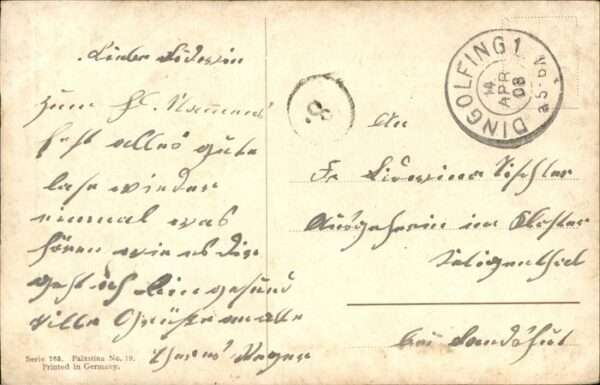 Liebe Lidwin
zum hl. Namens
fest alles gute
lase wieder
einmal was
hören wie es dir
geht ich bin gesund
Viele Grüße an alle
Theres
Serie 768. Palästina No. 19.
Printed in Germany.
8.
DINGOLFING 1
14 APR 08
An
Fr. Lidwina Tischler
Ausgeherin im Kloster
Seligenthal
bei Landshut